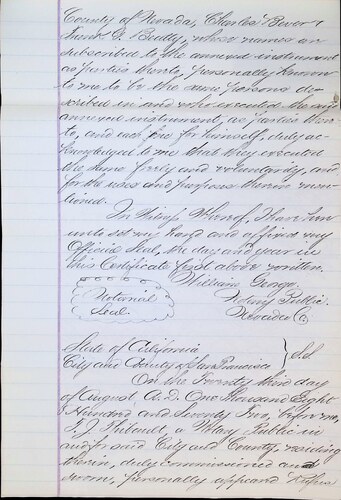 County of Nevada, Charles Bever &
Frank G. Beatty, whose names are
subscribed to the annexed instrument
as parties thereto, personally known
to me to be the same persons de-
scribed in and who executed the said
annexed instrument, as parties there-
to, and each one for himself, duly ac-
knowledged to me that they executed
the same freely and voluntarily, and
for the uses and purposes therein men-
tioned.
In Witness Whereof, I have here-
unto set my hand and affixed my
Official Seal, the day and year in
this Certificate first above written.
William George
Notarial
Seal.
Notary Public.
Nevada Co.
State of California
City and County of San Francisco } S.S.
On the Twenty third day
of August, A.D. One Thousand Eight
Hundred and Seventy Two, before me,
F. J. Thibault, a Notary Public in
and for said City and County, residing
therein, duly commissioned and
sworn, personally appeared